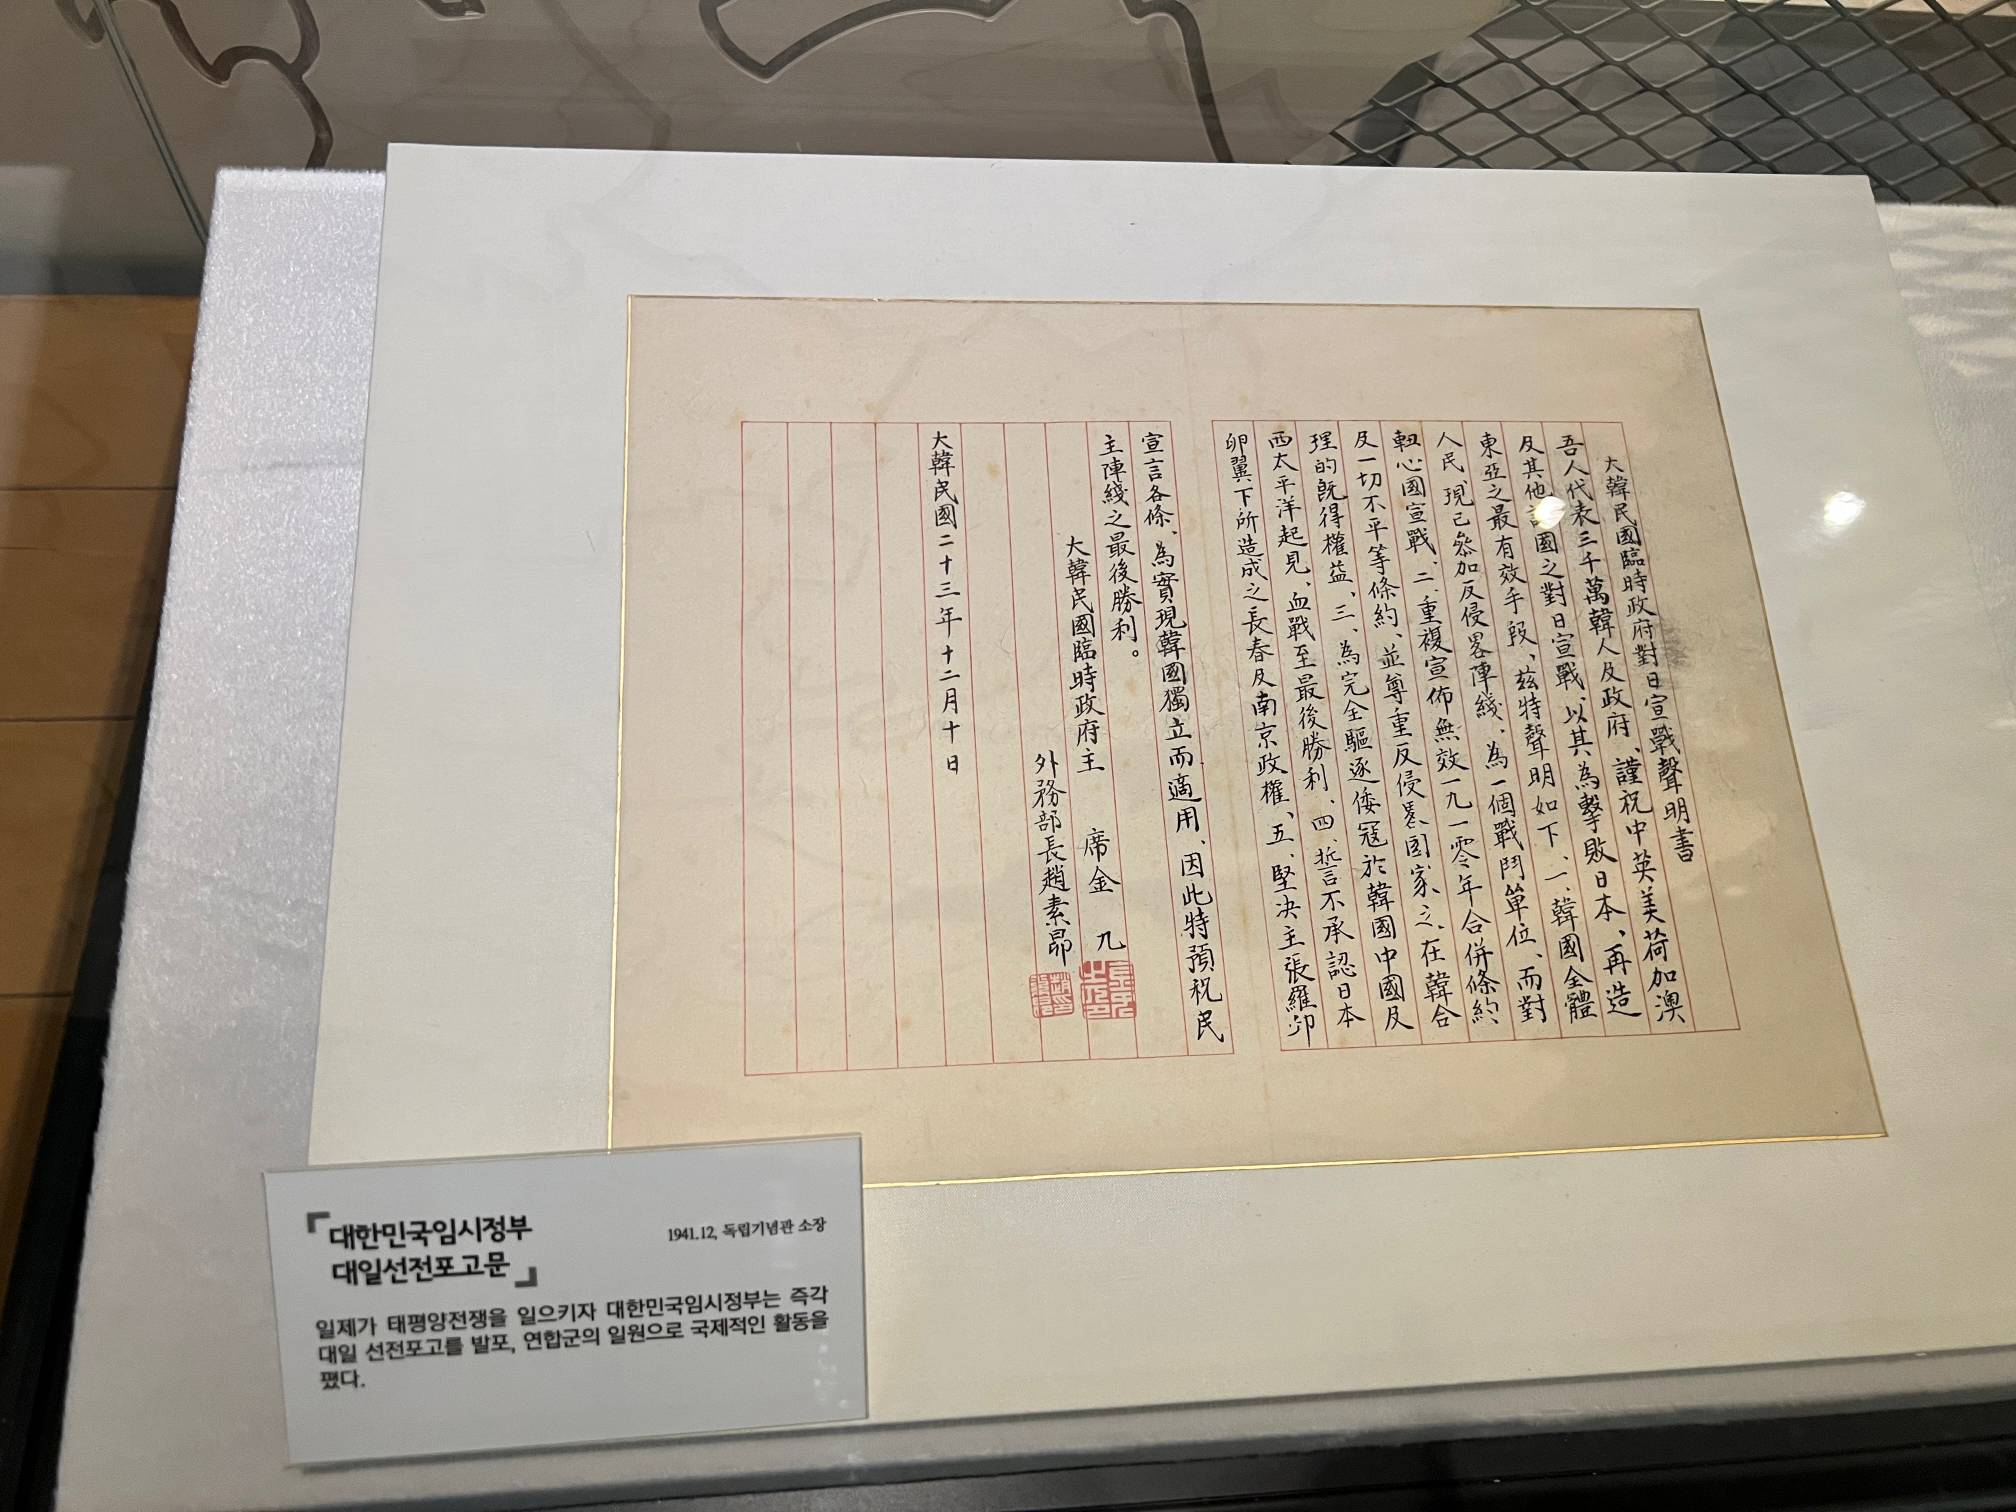 大韓民國臨時政府對日宣戰聲明書
吾人代表三千萬韓人及政府、謹祝中英美荷加澳
及其他國之對日宣戰、以其為擊敗日本、再造
東亞之最有效手段、茲特聲明如下、一、韓國全體
人民、現已參加反侵畧陣綫、為一個戰鬥單位、而對
軸心國宣戰、二、重複宣佈無效一九一零年合併條約、
及一切不平等條約、並尊重反侵畧國家之、在韓合
理的既得權益、三、為完全驅逐倭寇於韓國中國及
西太平洋起見、血戰至最後勝利、四、誓不承認日本
卵翼下所造成之長春及南京政權、五、堅決主張羅邱
宣言各條、為實現韓國獨立而適用、因此特預祝民
主陣綫之最後勝利。
大韓民國臨時政府主 席金 九
外務部長趙素昂
大韓民國二十三年十二月十日
「대한민국임시정부
대일선전포고문」
1941.12, 독립기념관 소장
일제가 태평양전쟁을 일으키자 대한민국임시정부는 즉각
대일 선전포고를 발포, 연합군의 일원으로 국제적인 활동을
폈다.